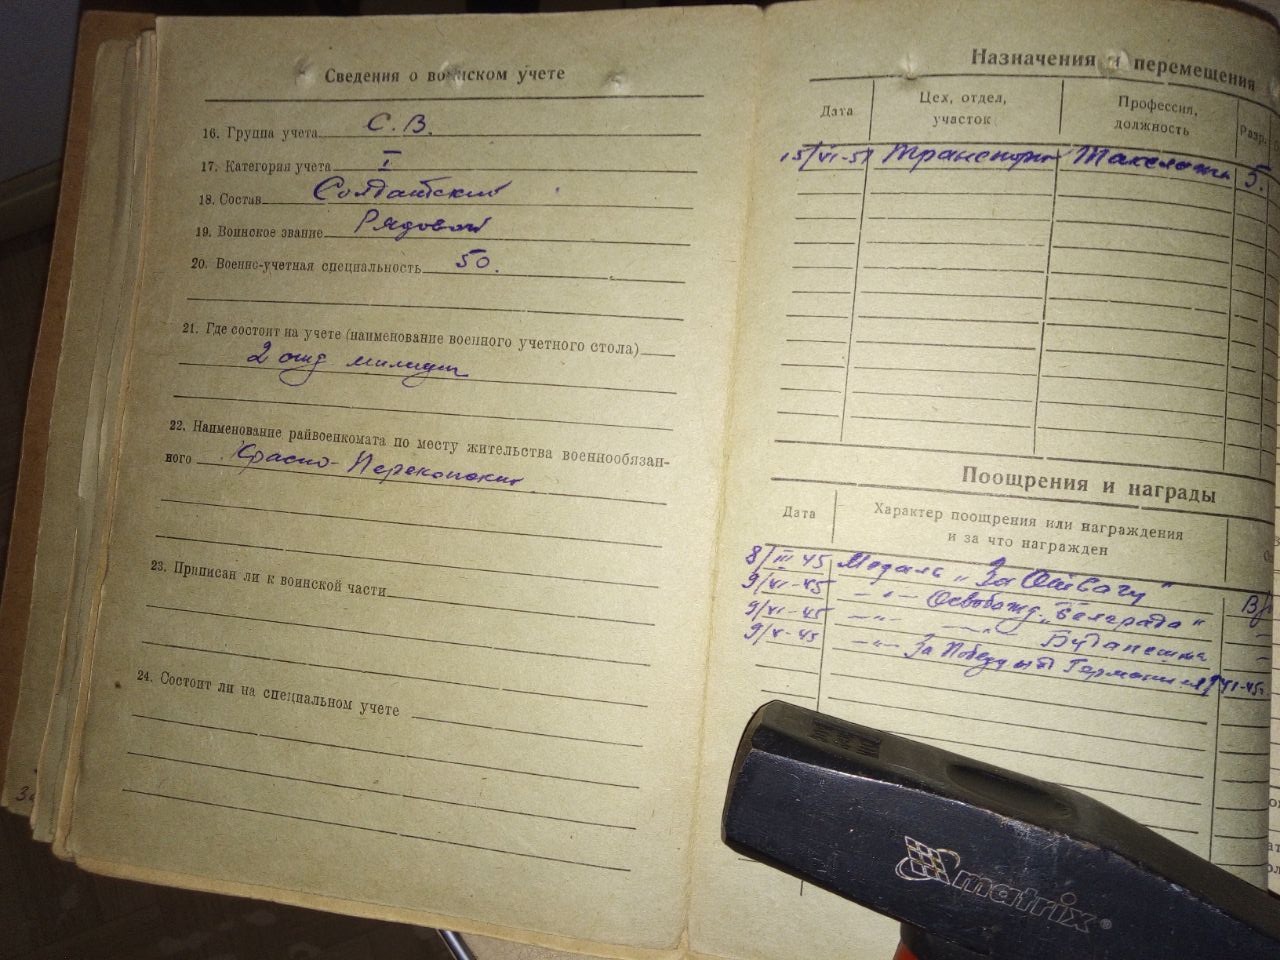 Сведения о воинском учете
16. Группа учета С.В.
17. Категория учета I
18. Состав Солдатский
19. Воинское звание Рядовой
20. Военно-учетная специальность 50.
21. Где состоит на учете (наименование военного учетного стола)
2 отд милиции
22. Наименование райвоенкомата по месту жительства военнообязан-
ного Красно-Перекопский
23. Приписан ли к воинской части
24. Состоит ли на специальном учете
Назначения и перемещения
Дата Цех, отдел, участок Профессия, должность Разр.
15/VI-51 Транспорт Такелажн 5.
Поощрения и награды
Дата Характер поощрения или награждения
и за что награжден
8/III 45 Медаль "За Отвагу"
9/VI-45 —"— Освобожд. "Белграда"
9/VI-45 —"— —"— Будапешта
9/V-45 —"— За Победу Германией 9/VI-45г
matrix®